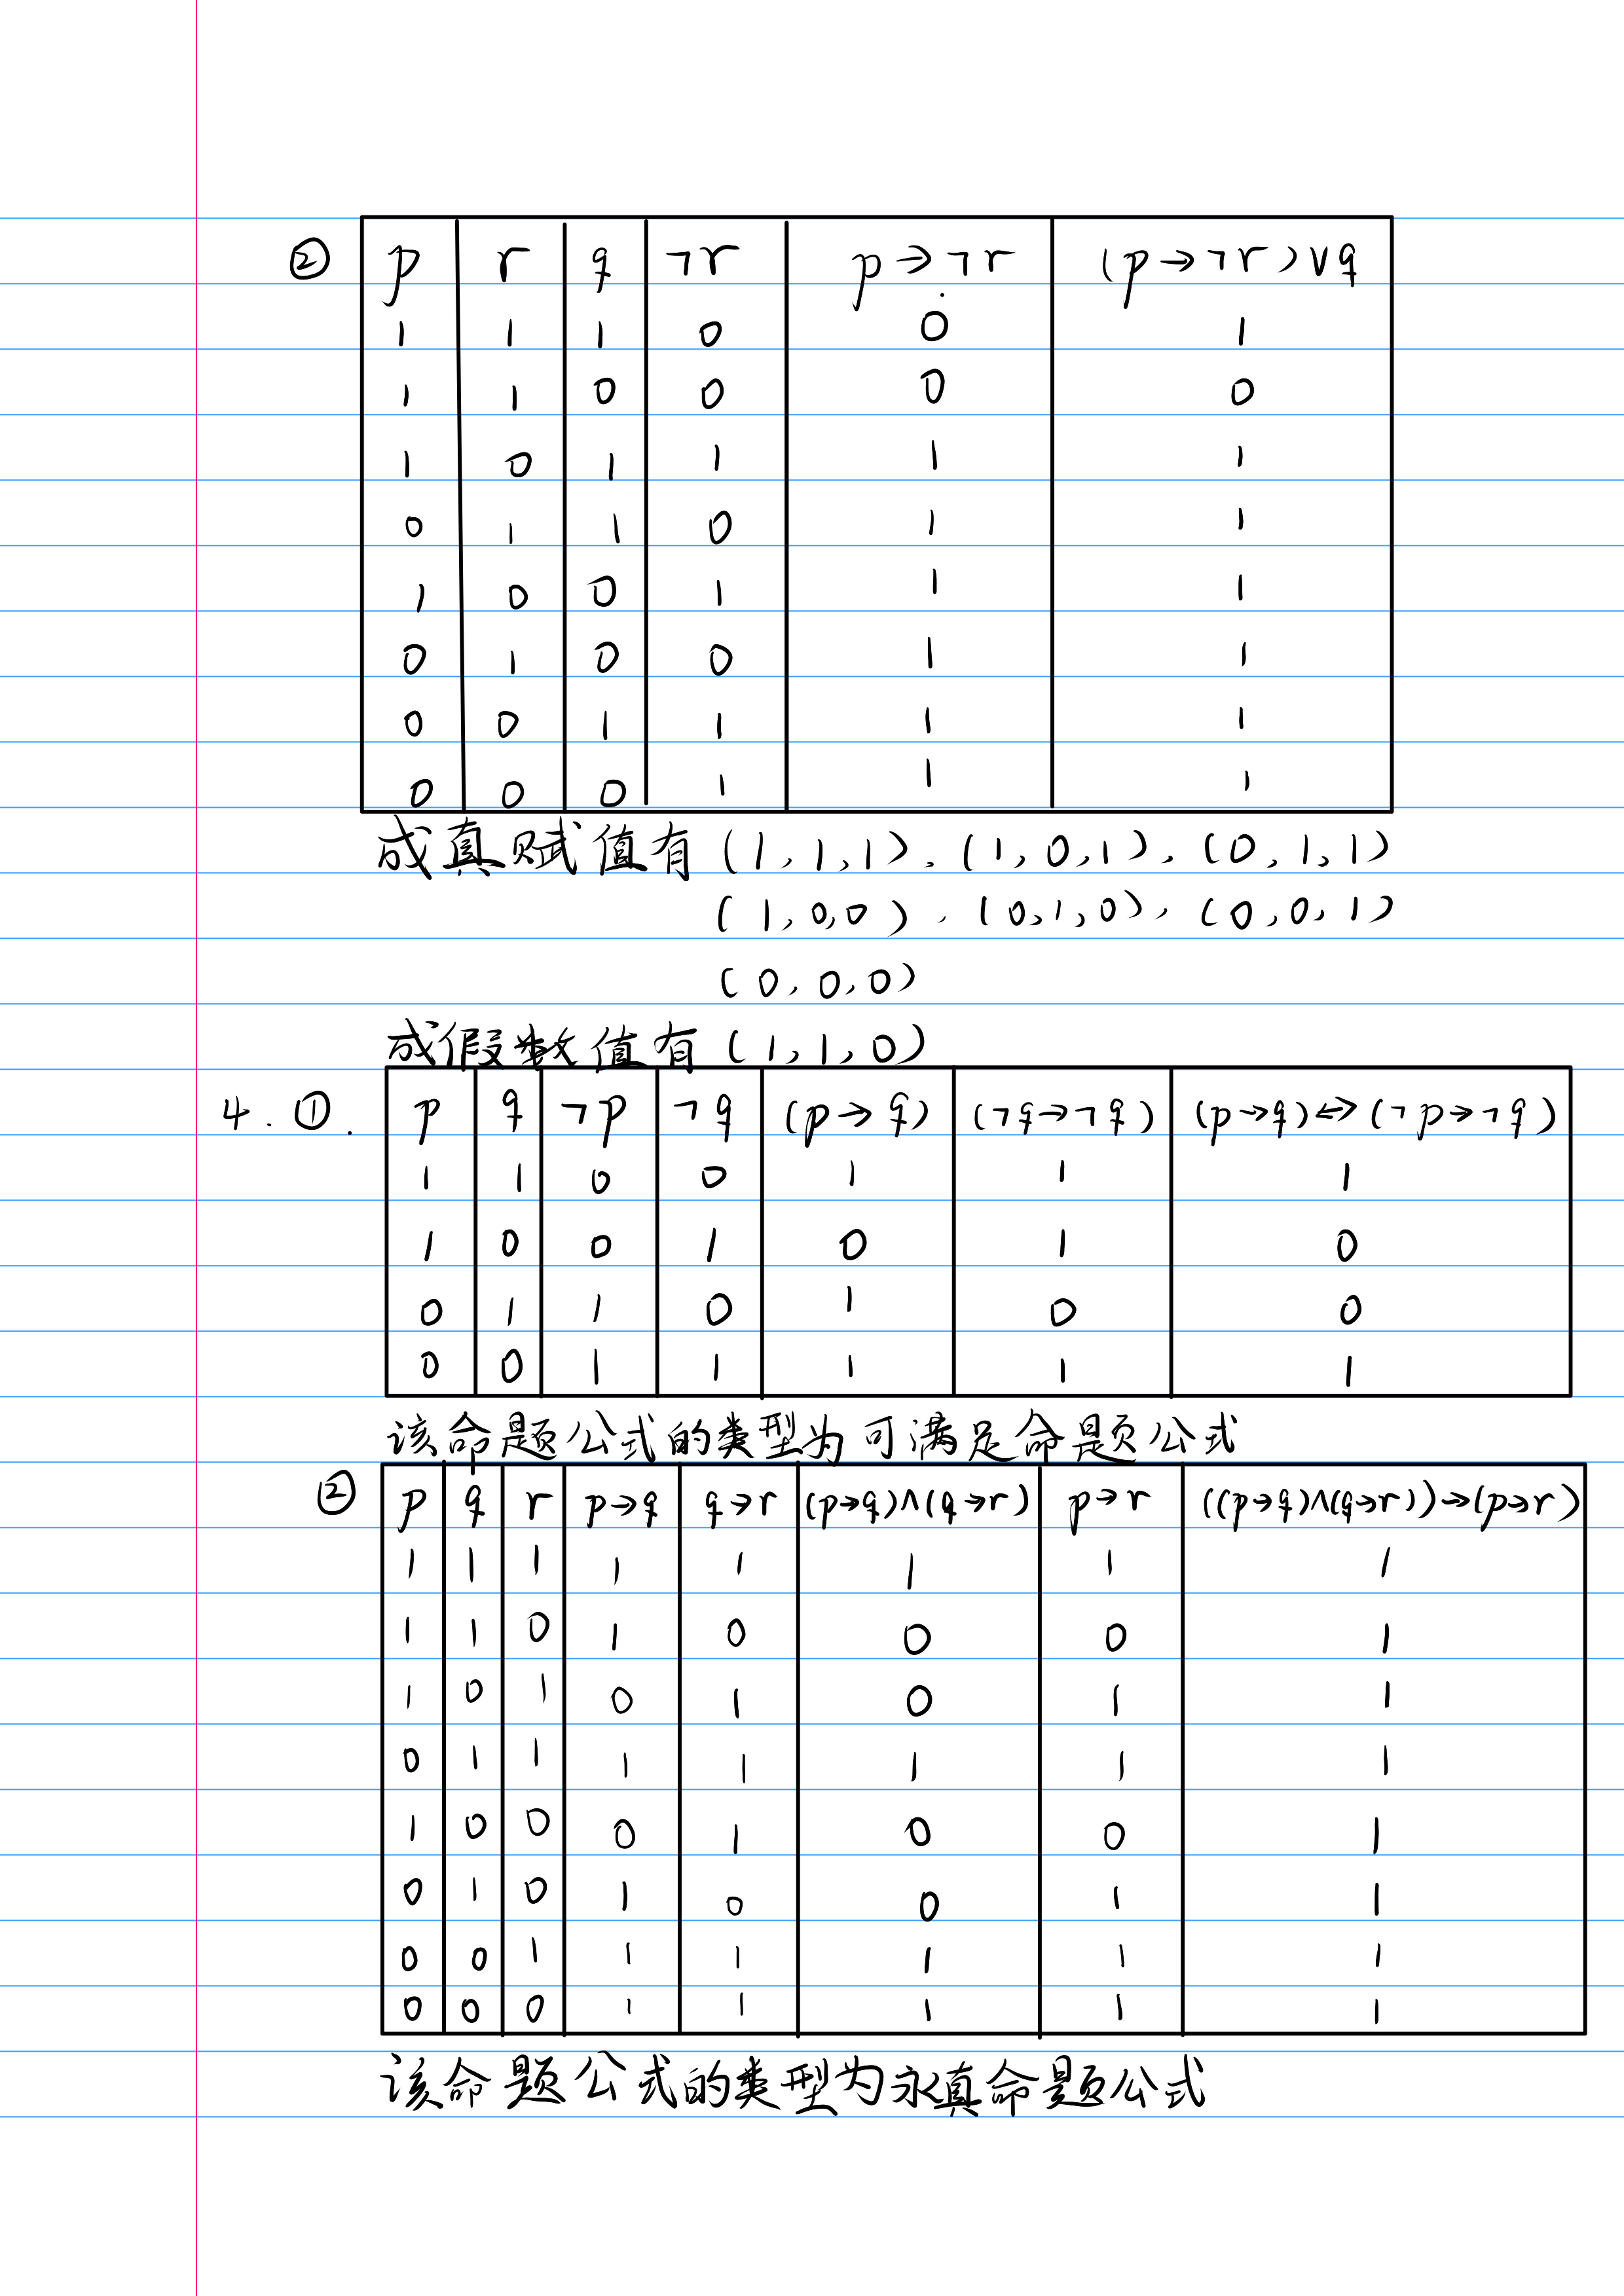 ② p r q ¬r p→¬r (p→¬r)∨q
1 1 1 0 0 1
1 1 0 0 0 0
1 0 1 1 1 1
0 1 1 0 1 1
1 0 0 1 1 1
0 1 0 0 1 1
0 0 1 1 1 1
0 0 0 1 1 1
成真赋值有(1,1,1).(1,0,1).(0,1,1)
(1,0,0).(0,1,0),(0,0,1)
(0,0,0)
成假数值有(1,1,0)
4.①. p q ¬p ¬q (p→q) (¬q→¬q) (p→q)↔(¬p→¬q)
1 1 0 0 1 1 1
1 0 0 1 0 1 0
0 1 1 0 1 0 0
0 0 1 1 1 1 1
该命题公式的类型为可满足命题公式
② p q r p→q q→r (p→q)∧(q→r) p→r ((p→q)∧(q→r))→(p→r)
1 1 1 1 1 1 1 1
1 1 0 1 0 0 0 1
1 0 1 0 1 0 1 1
0 1 1 1 1 1 1 1
1 0 0 0 1 0 0 1
0 1 0 1 0 0 1 1
0 0 1 1 1 1 1 1
0 0 0 1 1 1 1 1
该命题公式的类型为永真命题公式